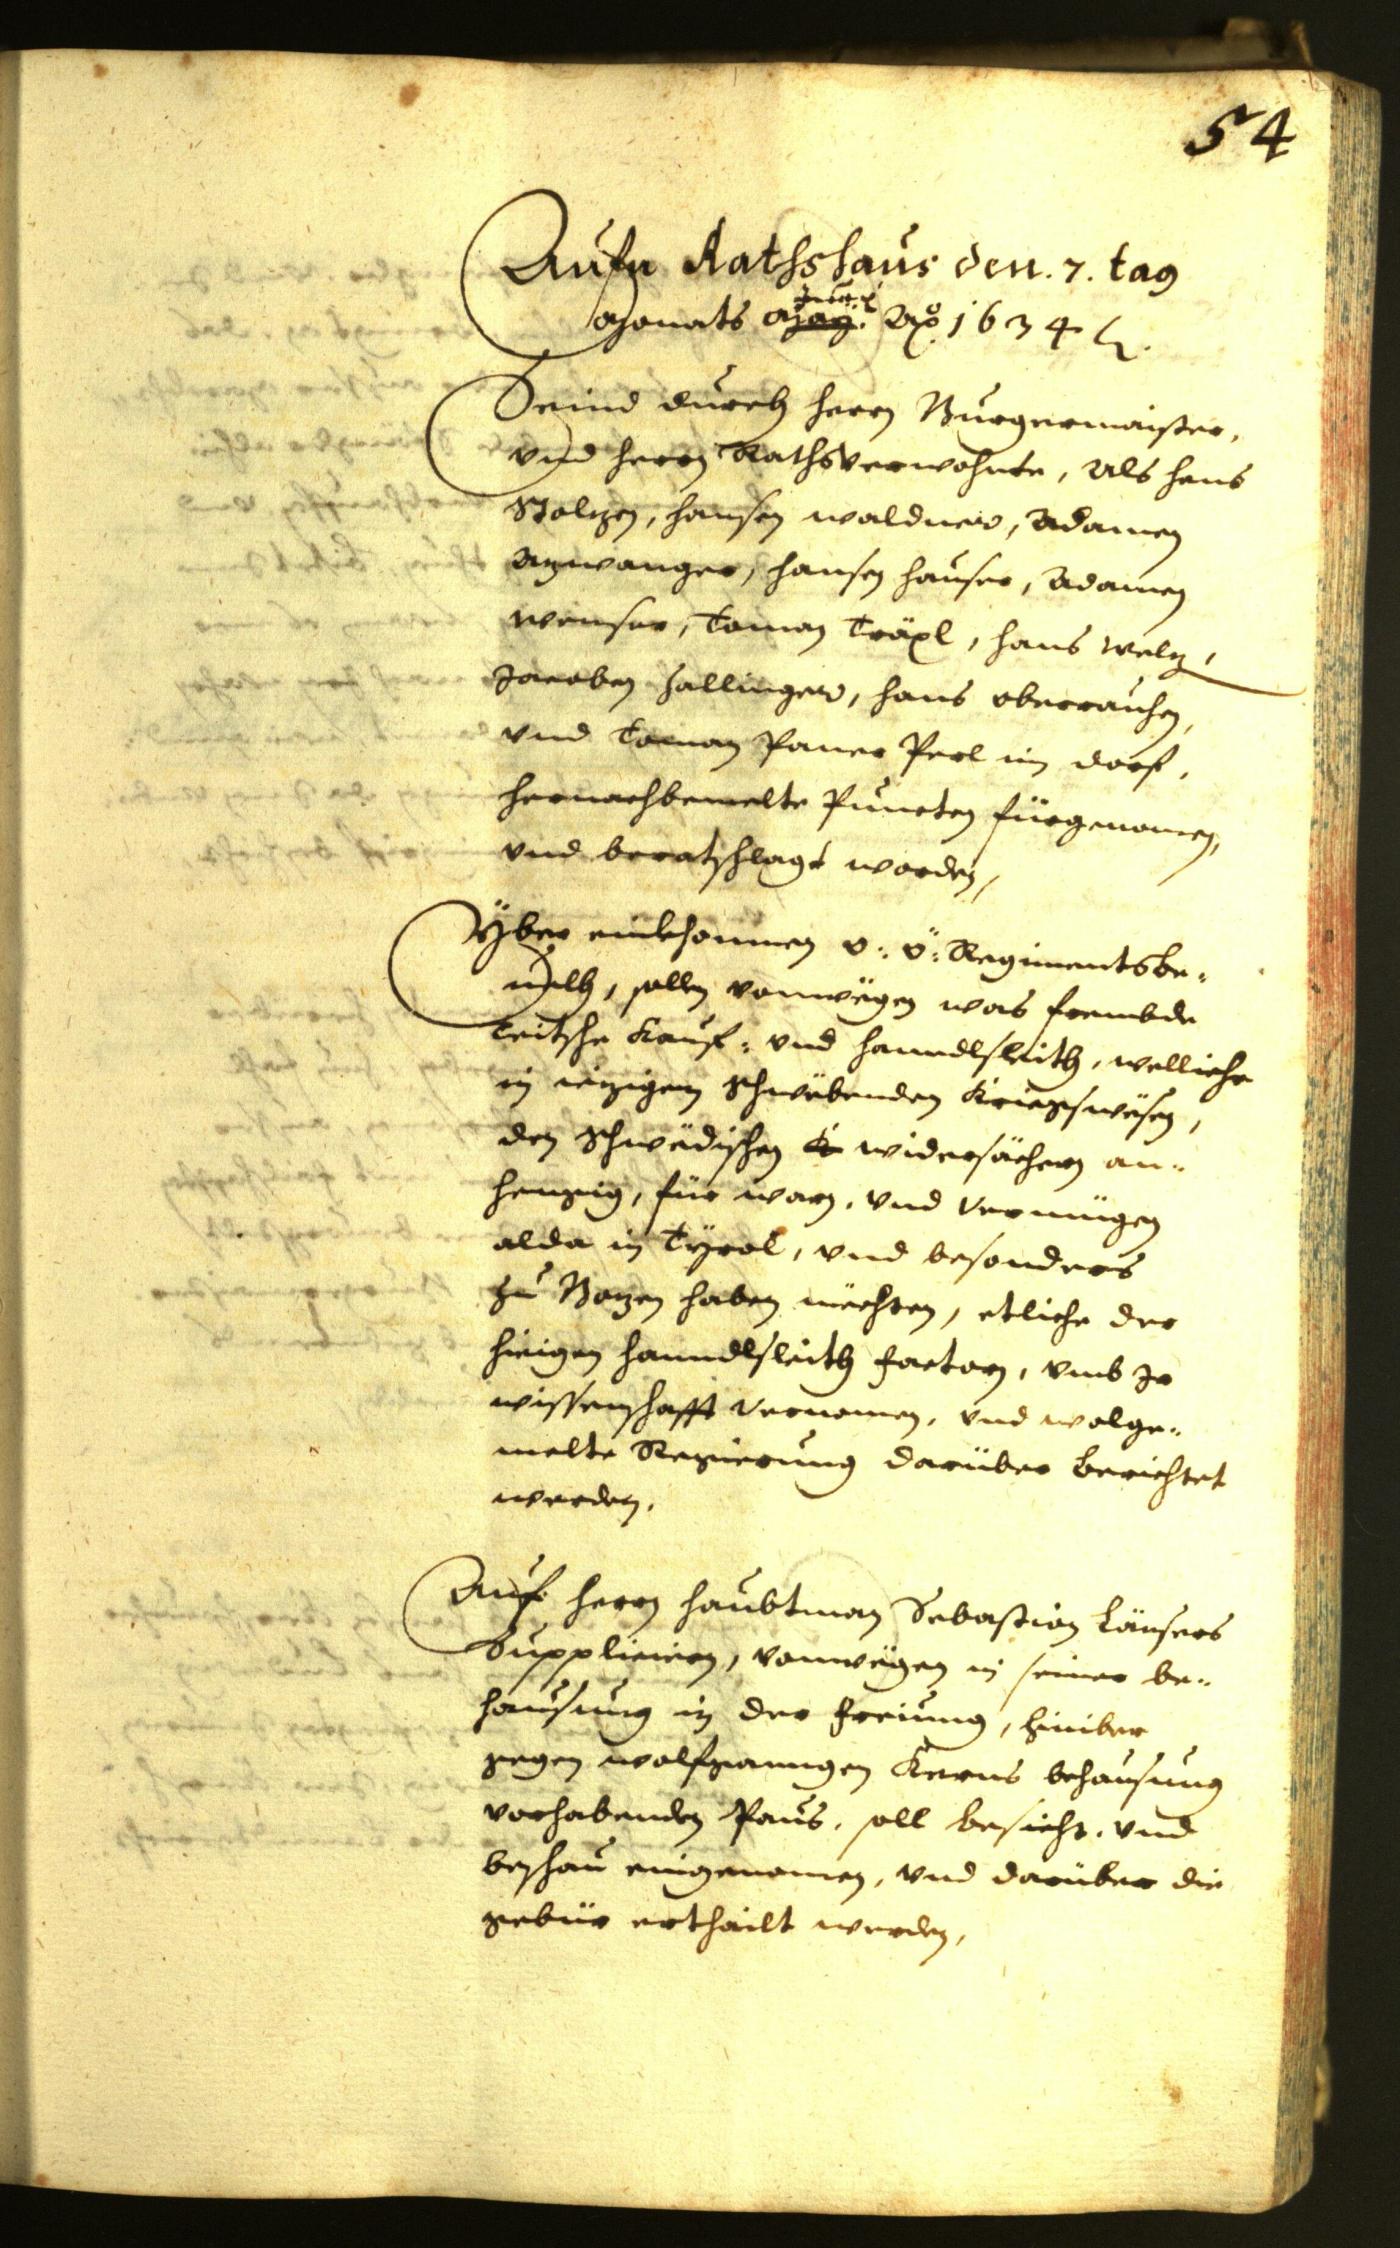 54
Aufn Rathshaus den. 7. tag
Monats May. Juny Ao. 1634
Seind durch herrn Burgermaister,
vnd herrn Rathsverwohnte, Als hans
Stolzen, hansen waldner, Adamen
Azwanger, hansen hauser, Adamen
wenser, Toman Träxl, hans welz,
Jacoben Hallinger, hans oberrauhen,
vnd Toman Paner Perl im dorf,
hernachbemelte Puncten fürgenomen,
vnd beratschlagt worden,
Yber einkhommen o: ö: Regimentsbe-
uelh, sollen vonwegen was frembde
Teitsche Kauf- vnd handlsleith, welliche
in iezigem schwebenden Kriegswesen,
den Schwedischen widersächern an-
hengig, für warn, vnd vermügen
alda in Tyrol, vnd besonders
zu Bozen haben mechten, etliche der
hieigen handlsleith factorn, vmb Ir
wissenschafft vernomen, vnd wolge-
melte Regierung darüber berichtet
werden.
Auf herrn haubtman Sebastian Länsers
Supplicirn, vonwegen in seiner be-
hausung in der freiung, hiniber
gegen wolfganngen Kerns behausung
vorhabenden Paus, soll besicht- vnd
beschau eingenomen, vnd darüber die
gebür erthailt werden,